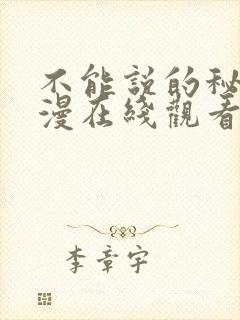 不能説的秘
漫在綫觀看
李章宇